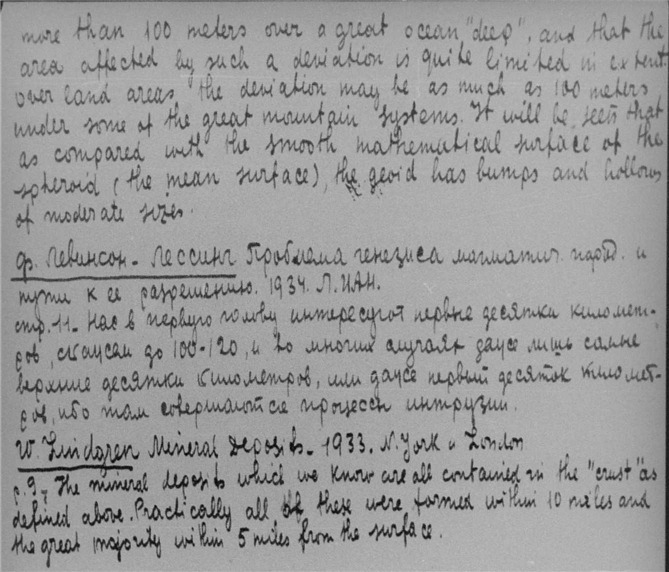 more than 100 meters over a great ocean "deep", and that the
area affected by such a deviation is quite limited in extent.
Over land areas the deviation may be as much as 100 meters
under some of the great mountain systems. It will be seen that
as compared with the smooth mathematical surface of the
spheroid (the mean surface), the geoid has bumps and hollows
of moderate sizes.
Ф. Левинсон-Лессинг Проблема генезиса магматич. пород и
пути к ее разрешению. 1934. Л. ИАН.
стр. 11. Нас в первую голову интересуют первые десятки километ-
ров, скажем до 100-120, и во многих случаях даже лишь самые
верхние десятки километров, или даже первый десяток километ-
ров, ибо там совершаются процессы интрузии.
W. Lindgren Mineral Deposits - 1933. N. York и London
p. 9. The mineral deposits which we know are all contained in the "crust" as
defined above. Practically all of these were formed within 10 miles and
the great majority within 5 miles from the surface.